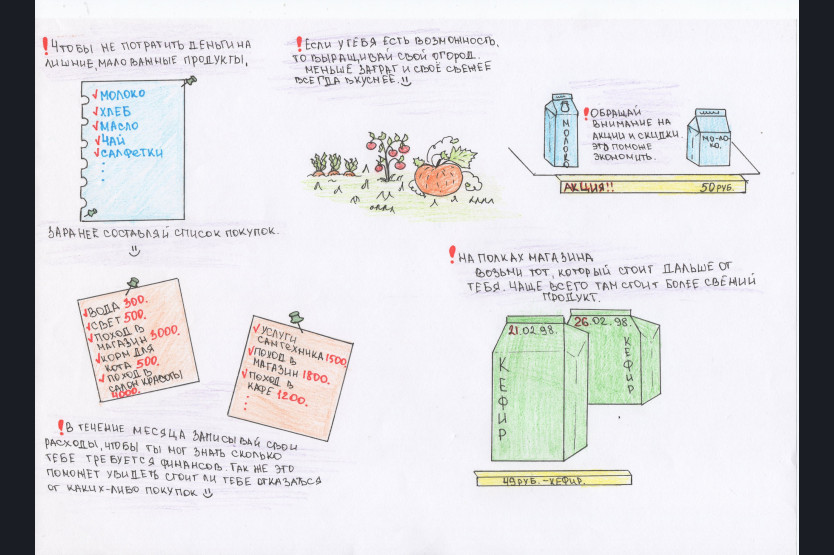 !Чтобы не потратить деньги на
лишние, маловажные продукты,
✓молоко
✓хлеб
✓масло
✓чай
✓салфетки
заранее составляй список покупок.
!Если у тебя есть возможность,
то выращивай свой огород.
Меньше затрат и своё свежее
всегда вкуснее.
МОЛОКО
!Обращай
внимание на
акции и скидки.
Это поможе
экономить.
МО-ЛО
КО.
АКЦИЯ!! 50 РУБ.
!На полках магазина
возьми тот, который стоит дальше от
тебя. Чаще всего там стоит более свежий
продукт.
21.02.98.
26.02.98.
КЕФИР
КЕФИР
49 РУБ. -КЕФИР.
✓Вода 300.
✓Свет 500.
✓Поход в
магазин 3000.
✓Корм для
кота 500.
✓Поход в
салон красоты
4000.
✓Услуги
сантехника 1500.
✓Поход в
магазин 1800.
✓Поход в
кафе 1200.
!В течение месяца записывай свои
расходы, чтобы ты мог знать сколько
тебе требуется финансов. Так же это
поможет увидеть стоит ли тебе отказаться
от каких-либо покупок